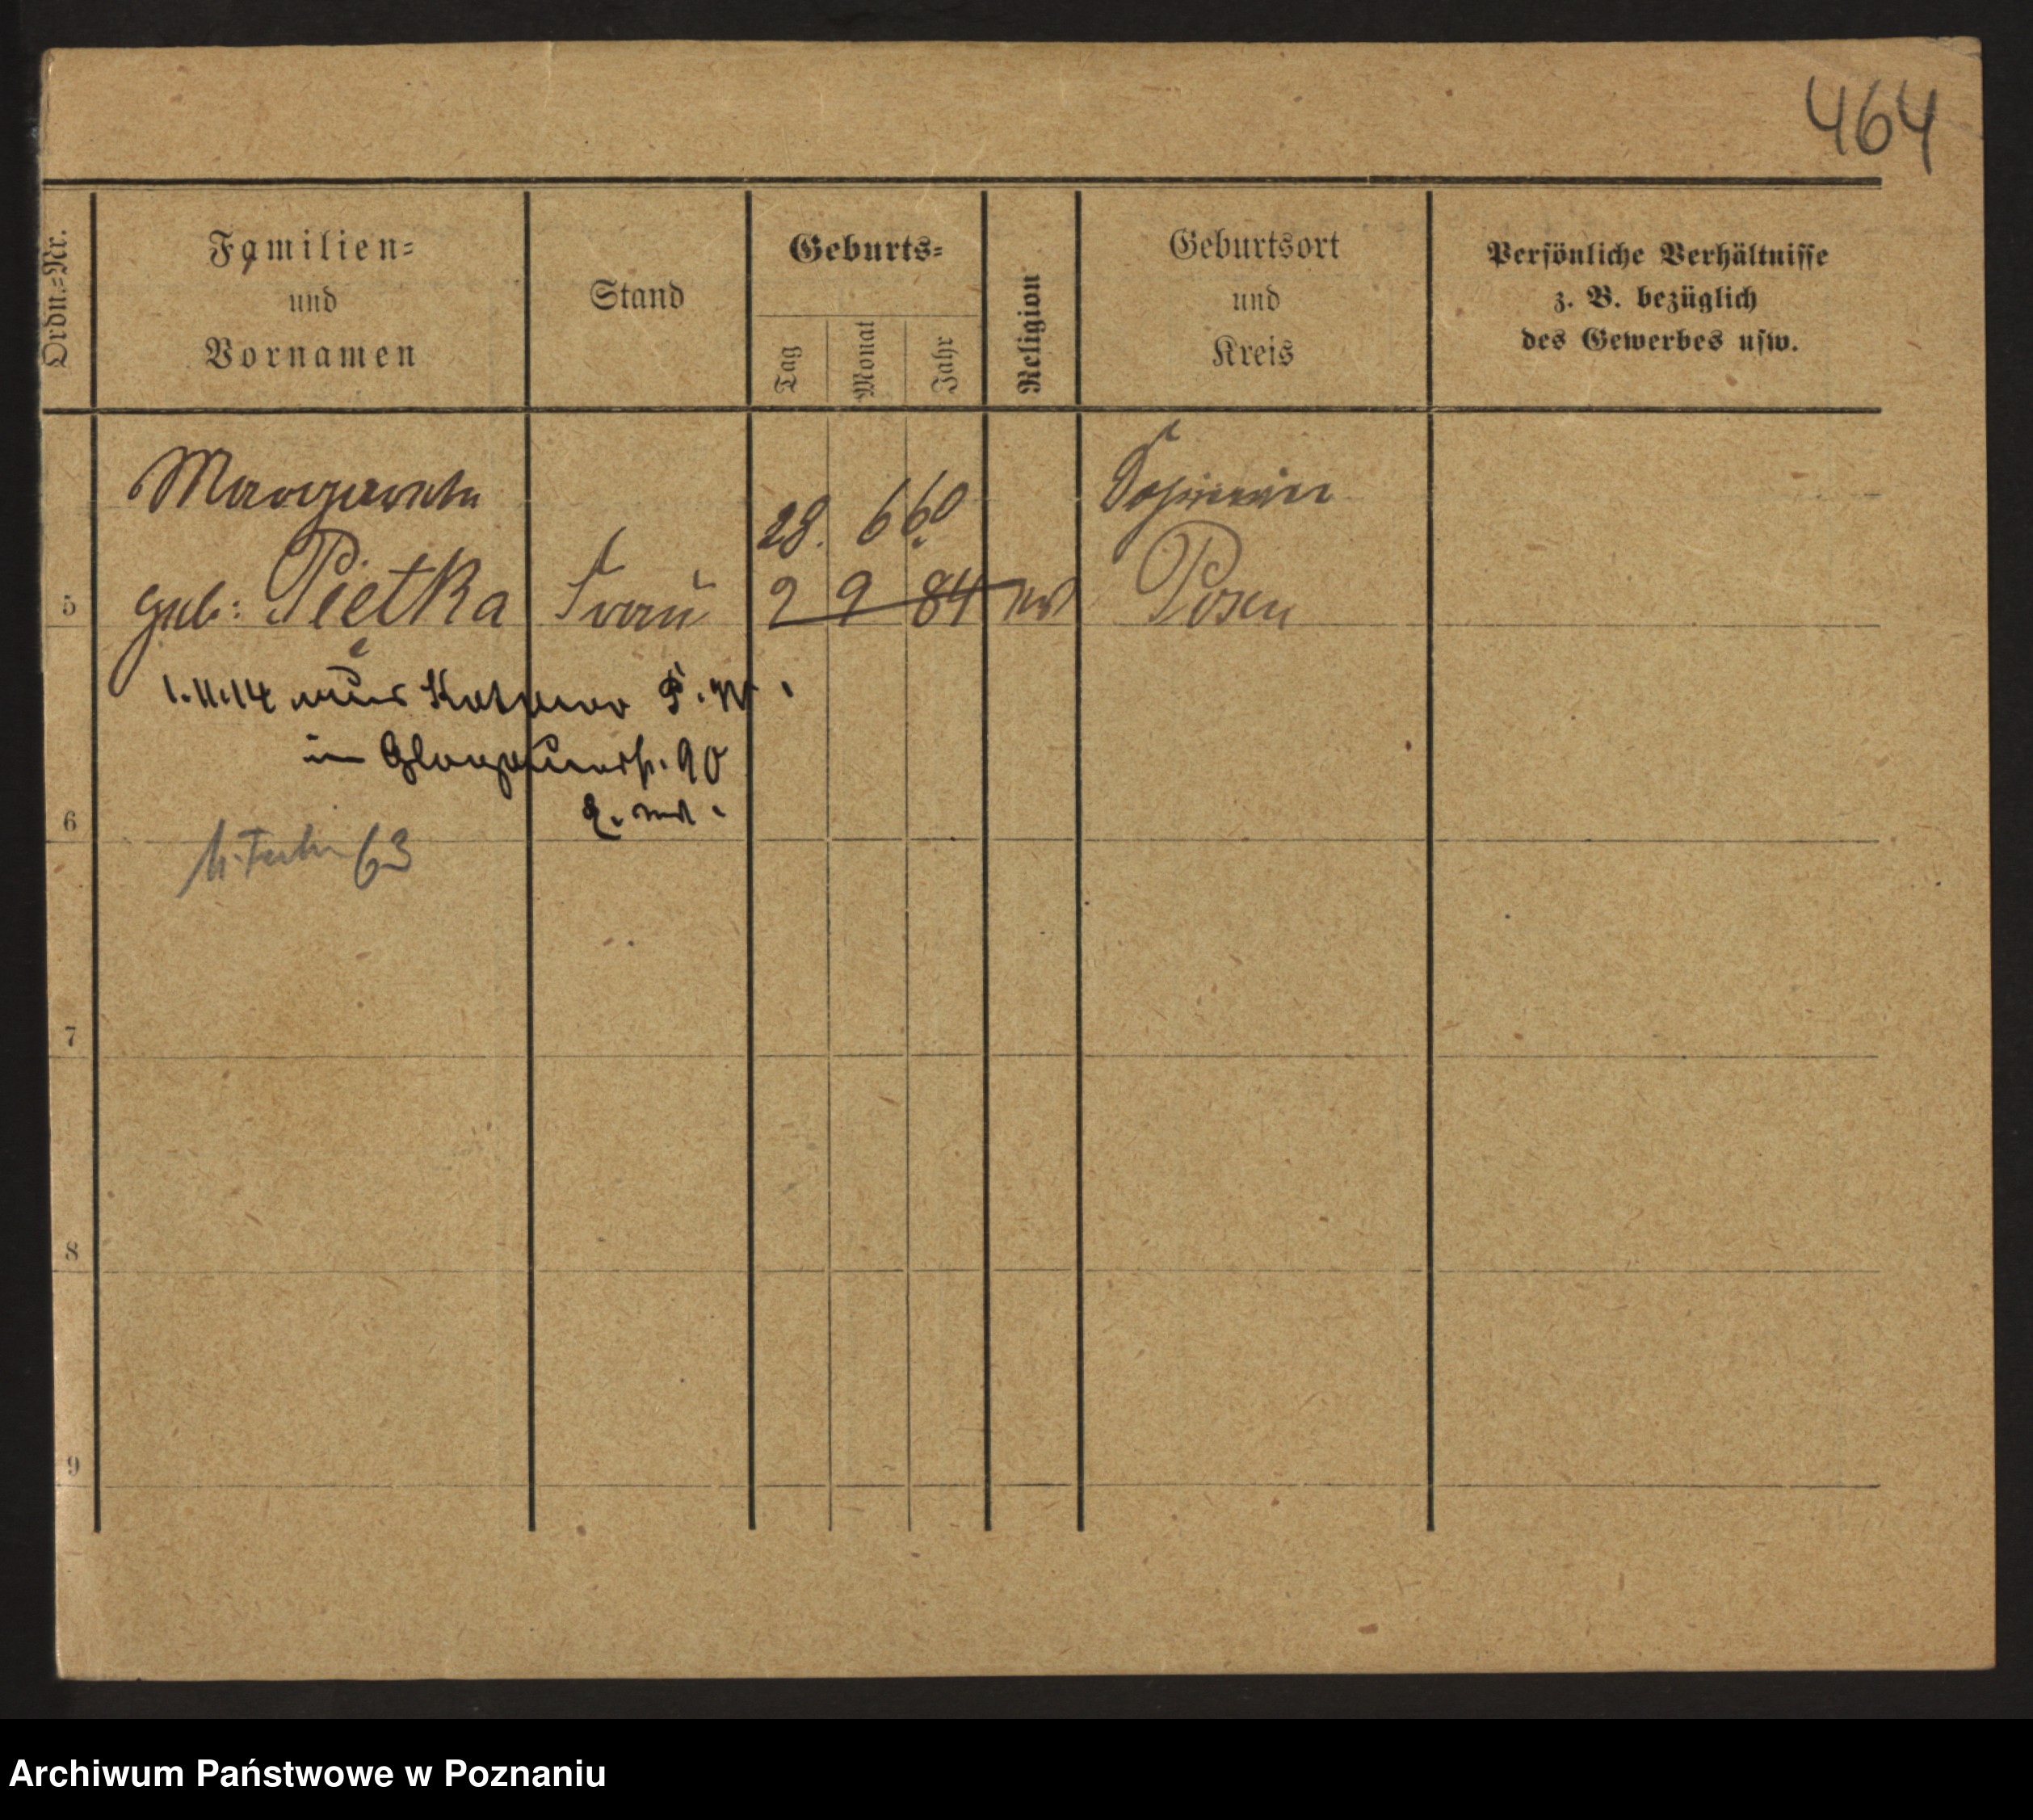 464
Ordn.-Nr.
Familien-
und
Vornamen
Stand
Geburts-
Tag
Monat
Jahr
Religion
Geburtsort
und
Kreis
Persönliche Verhältnisse
z. B. bezüglich
des Gewerbes usw.
Margarethe
28. 6 60
5 geb: Piętka Frau 2 9 84 Posen
1.11.14 aus
in 90
6
63
7
8
9
Archiwum Państwowe w Poznaniu